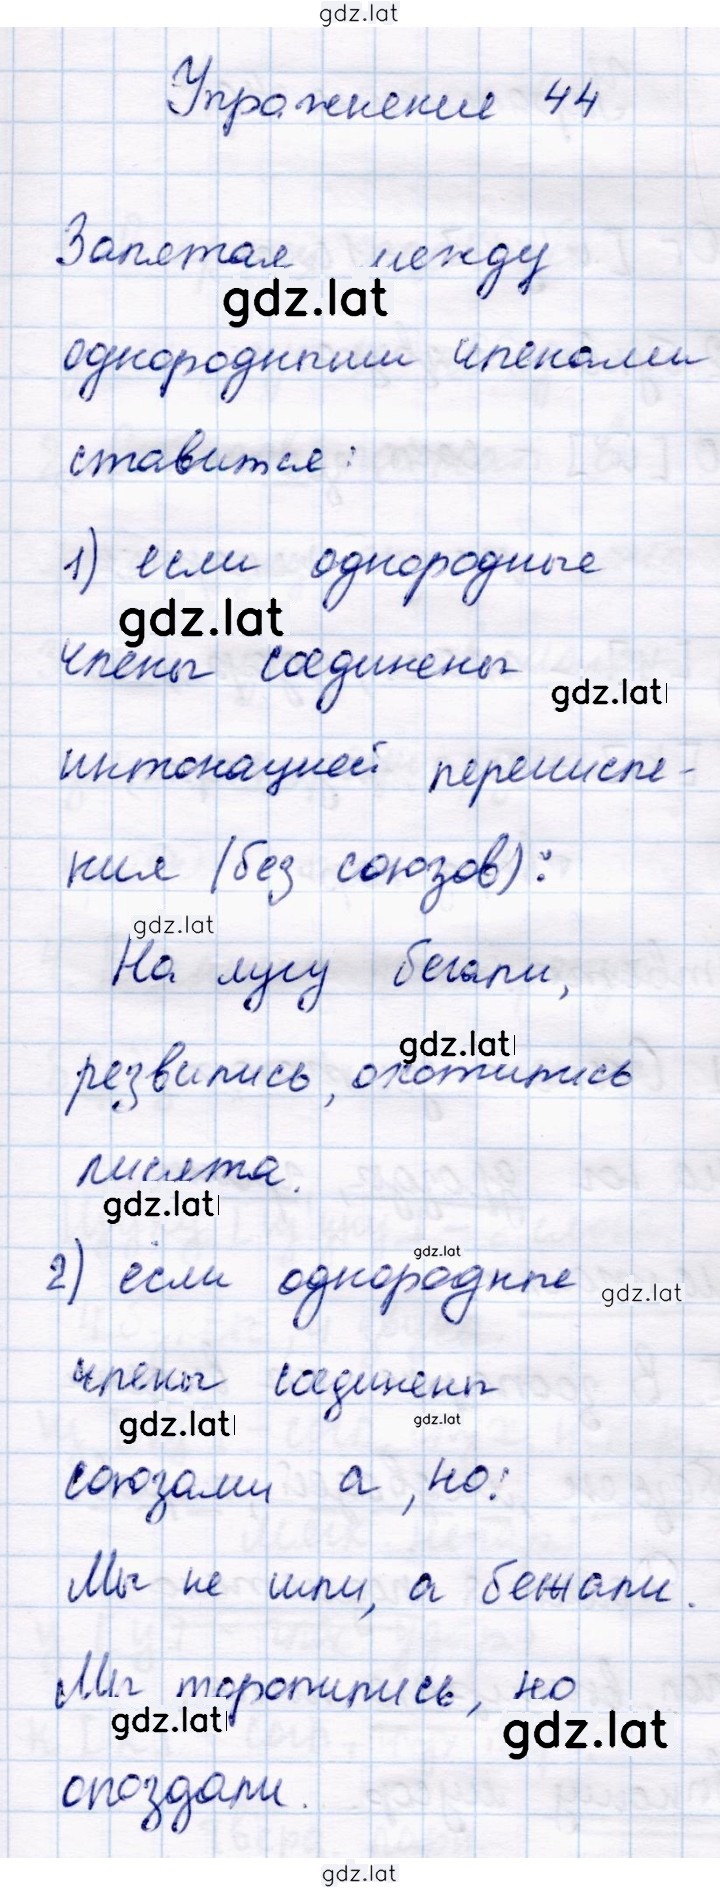 gdz.lat
Упражнение 44
Запятая между
gdz.lat
однородными членами
ставится:
1) если однородные
gdz.lat
члены соединены
gdz.lat
интонацией перечисле-
ния (без союзов):
gdz.lat
На лугу бегали,
gdz.lat
резвились, охотились
лисята.
gdz.lat
gdz.lat
2) если однородные
gdz.lat
члены соединены
gdz.lat
gdz.lat
союзами а, но:
Мы не шли, а бежали.
Мы торопились, но
gdz.lat
gdz.lat
опоздали.
gdz.lat